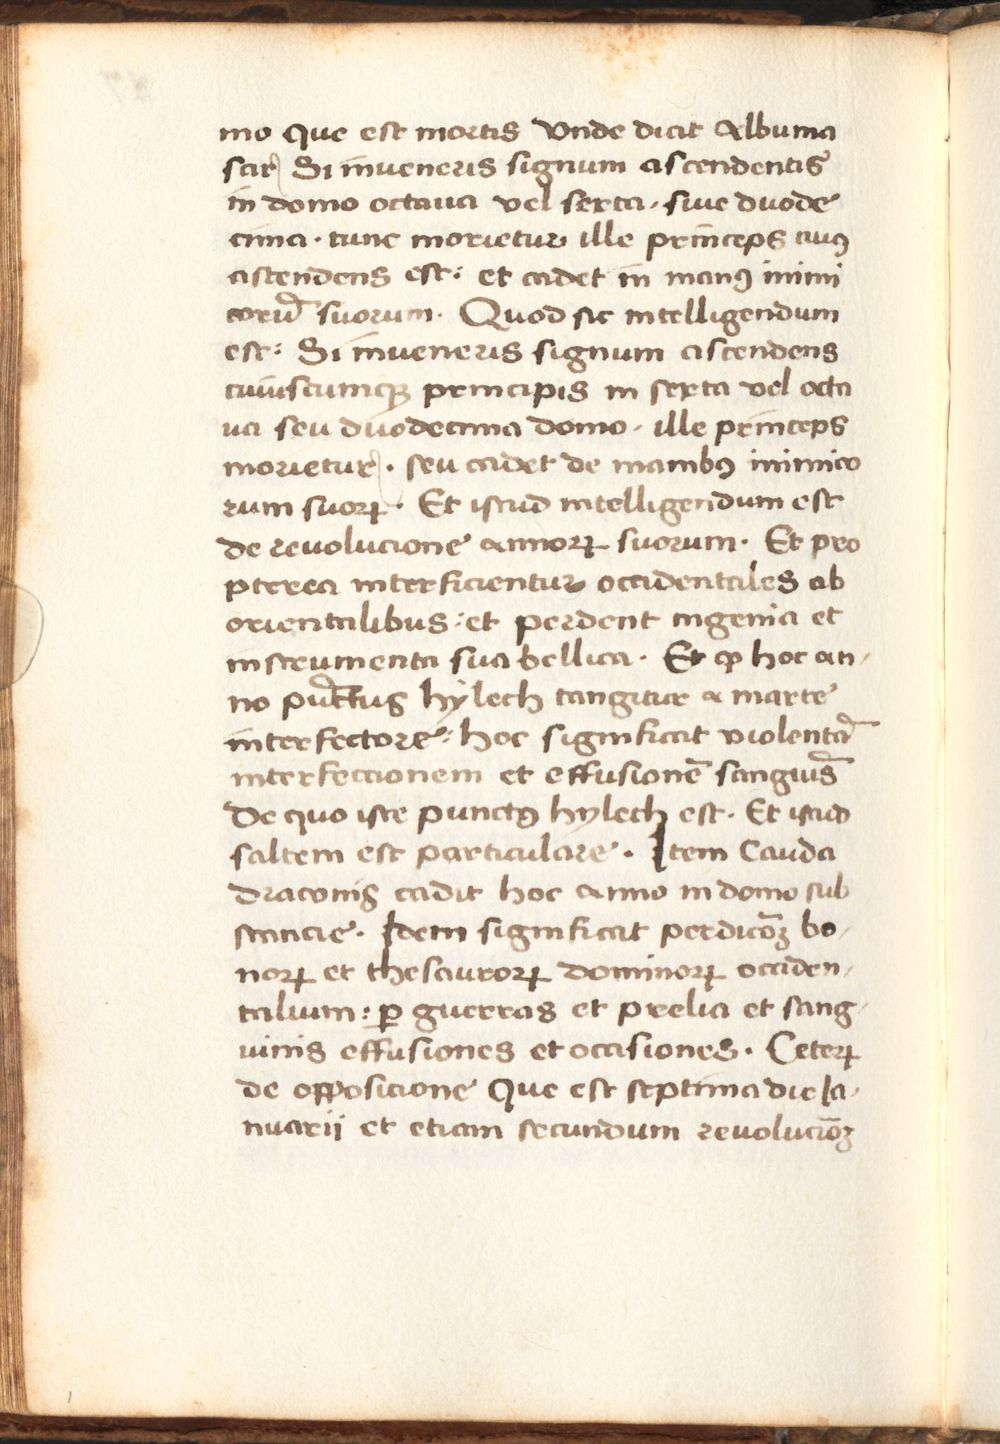 mo Que est mortis Vnde dicit Albuma
sar Si inueneris signum ascendentis
in domo octaua vel sexta · siue duode
cima · tunc morietur ille prīnceps cuiꝰ
ascendens est : et cadet in manꝰ inimi
corū suorum · Quod sic intelligendum
est : Si inueneris signum ascendens
cuiuscumqꝫ principis in sexta vel octa
ua seu duodecima domo · ille princeps
morietur · seu cadet de manibꝰ inimico
rum suoꝝ · Et istud intelligendum est
de reuolucione annoꝝ suorum · Et pro
pterea interficientur occidentales ab
orientalibus : et perdent ingenia et
instrumenta sua bellica · Et ꝙ hoc an /
no pūctus hÿlech tangitur a marte
interfectore : hoc significat violentā
interfeccionem et effusionē sanguīs
De quo iste punctꝰ hylech est · Et istud
saltem est particulare · Item Cauda
draconis cadit hoc anno in domo sub
stancie · Idem significat perdicōꝫ bo /
noꝝ et thesauroꝝ dominoꝝ occiden /
talium : ꝑ guerras et prelia et sang /
uinis effusiones et occasiones · Ceteꝝ
de opposicione Que est septima die Ia /
nuarij et etiam secundum reuoluciōꝫ